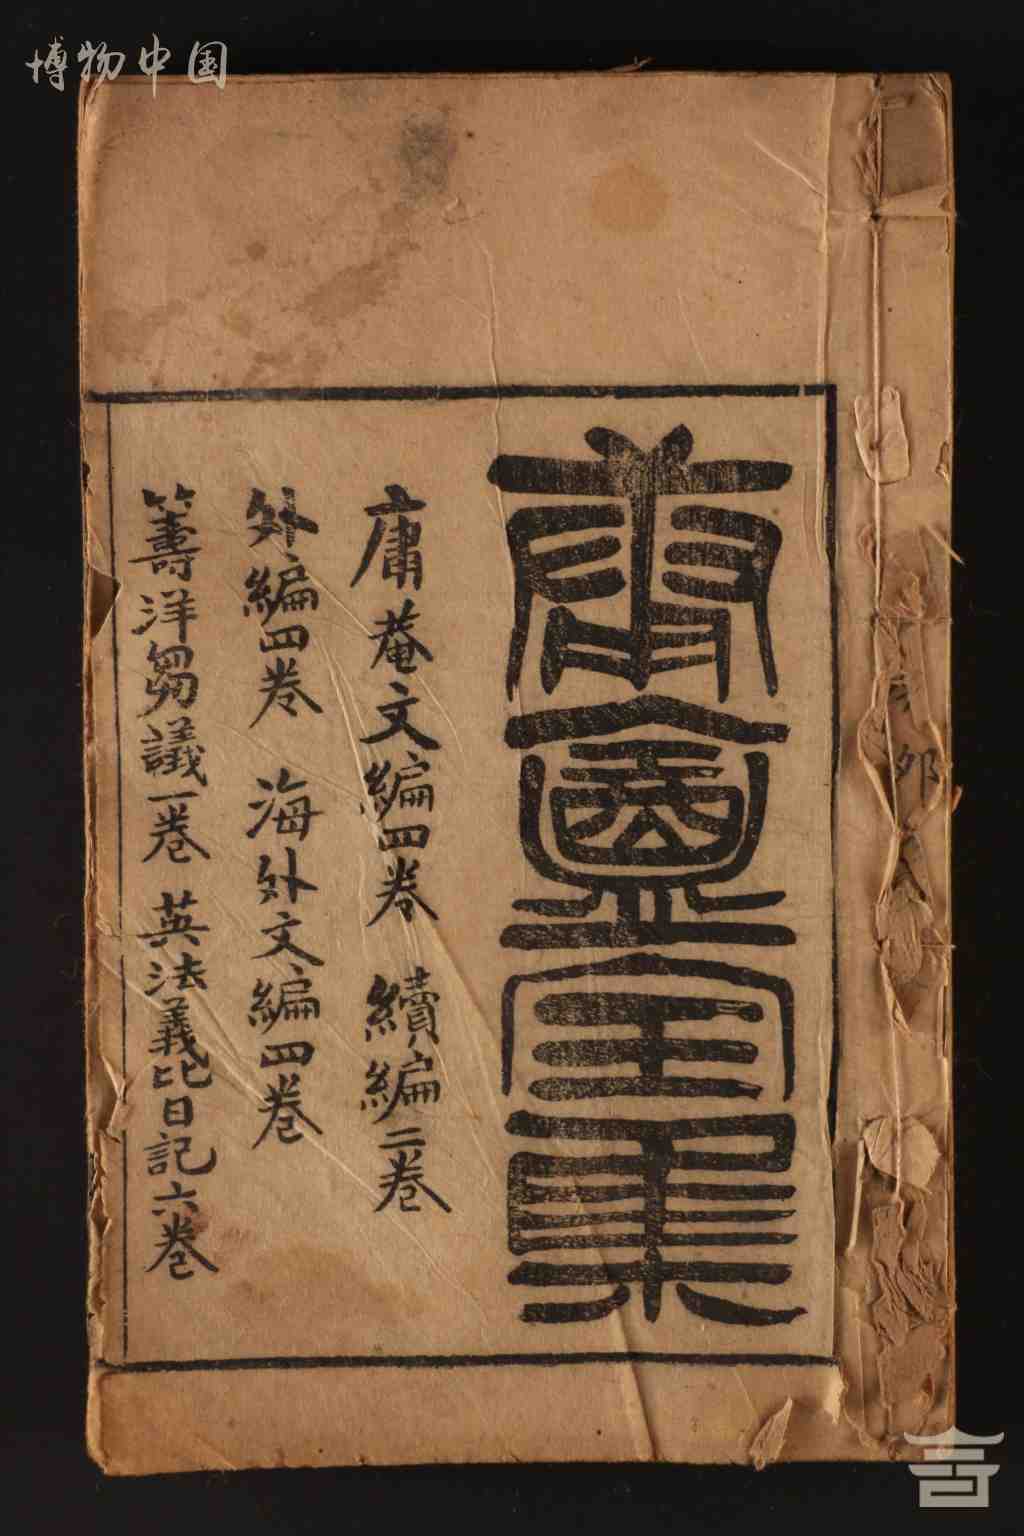 博物中国
庸盦全集
庸菴文編四卷 續編二卷
外編四卷 海外文編四卷
籌洋芻議一卷 英法義比日記六卷